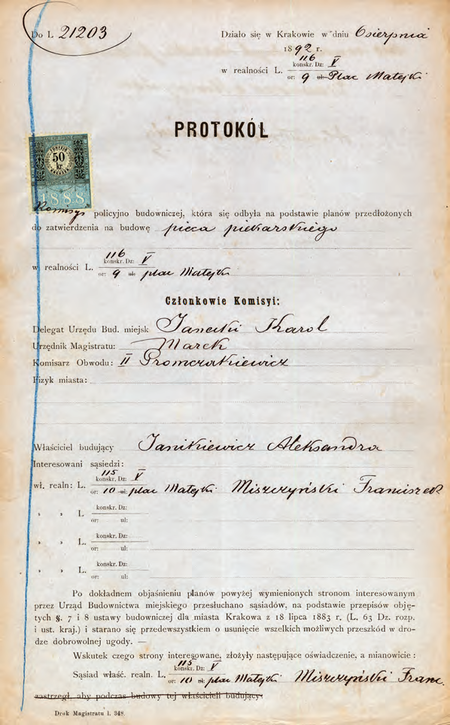 Do L. 21203
Działo się w Krakowie w dniu 6 sierpnia
1892 r.
w realności L. 116 konskr. Dz: V
or: 9 ul: Plac Matejki
PROTOKÓL
50
kr
1888
Komisyi policyjno budowniczej, która się odbyła na podstawie planów przedłożonych
do zatwierdzenia na budowę pieca piekarskiego
w realności L. 116 konskr. Dz: V
or: 9 ul: plac Matejki
Członkowie Komisyi:
Delegat Urzędu Bud. miejsk. Janecki Karol
Urzędnik Magistratu: Marek
Komisarz Obwodu: II Promczakiewicz
Fizyk miasta:
Właściciel budujący Janikiewicz Aleksandra
Interesowani sąsiedzi:
wł. realn: L. 115 konskr. Dz: V
or: 10 ul: plac Matejki Miszczyński Franciszek
„ „ L. konskr. Dz:
or: ul:
„ „ L. konskr. Dz:
or: ul:
„ „ L. konskr. Dz:
or: ul:
Po dokładnem objaśnieniu planów powyżej wymienionych stronom interesowanym
przez Urząd Budownictwa miejskiego przesłuchano sąsiadów, na podstawie przepisów obję-
tych §. 7 i 8 ustawy budowniczej dla miasta Krakowa z 18 lipca 1883 r. (L. 63 Dz. rozp.
i ust. kraj.) i starano się przedewszystkiem o usunięcie wszelkich możliwych przeszkód w dro-
dze dobrowolnej ugody. —
Wskutek czego strony interesowane, złożyły następujące oświadczenie, a mianowicie:
Sąsiad właść. realn. L. 115 konskr. Dz: V
or: 10 ul: plac Matejki Miszczyński Franc.
zastrzegł, aby podczas budowy tej właścicieli budujący
Druk Magistratu l. 348